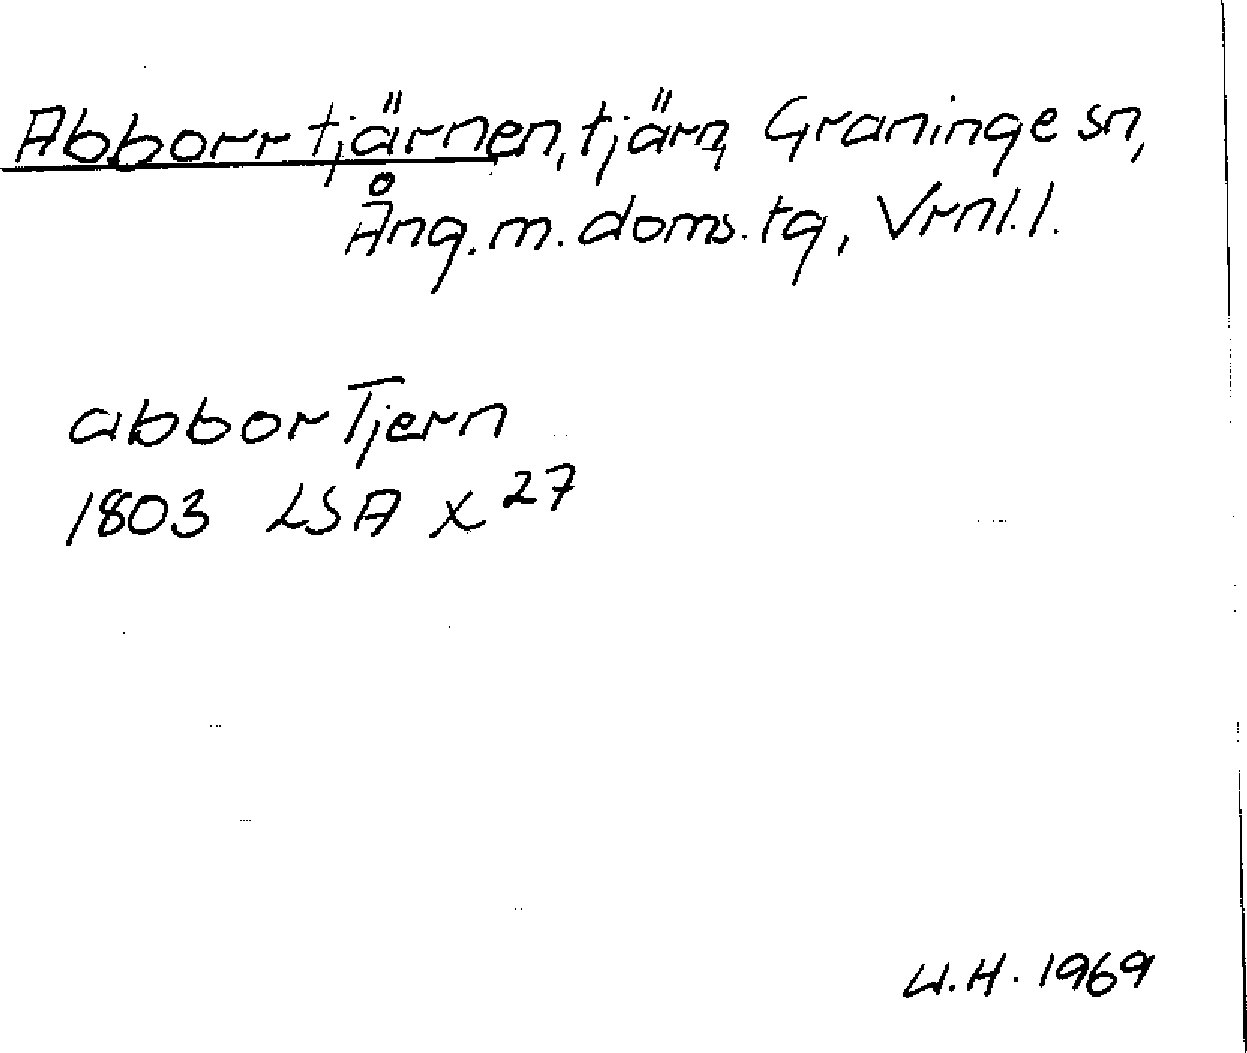 Abborrtjärnen, tjärn, Graninge sn,
Ång. m. doms. tg, Vrnl. l.
abborTjern
1803 LSA X 27
U.H. 1969